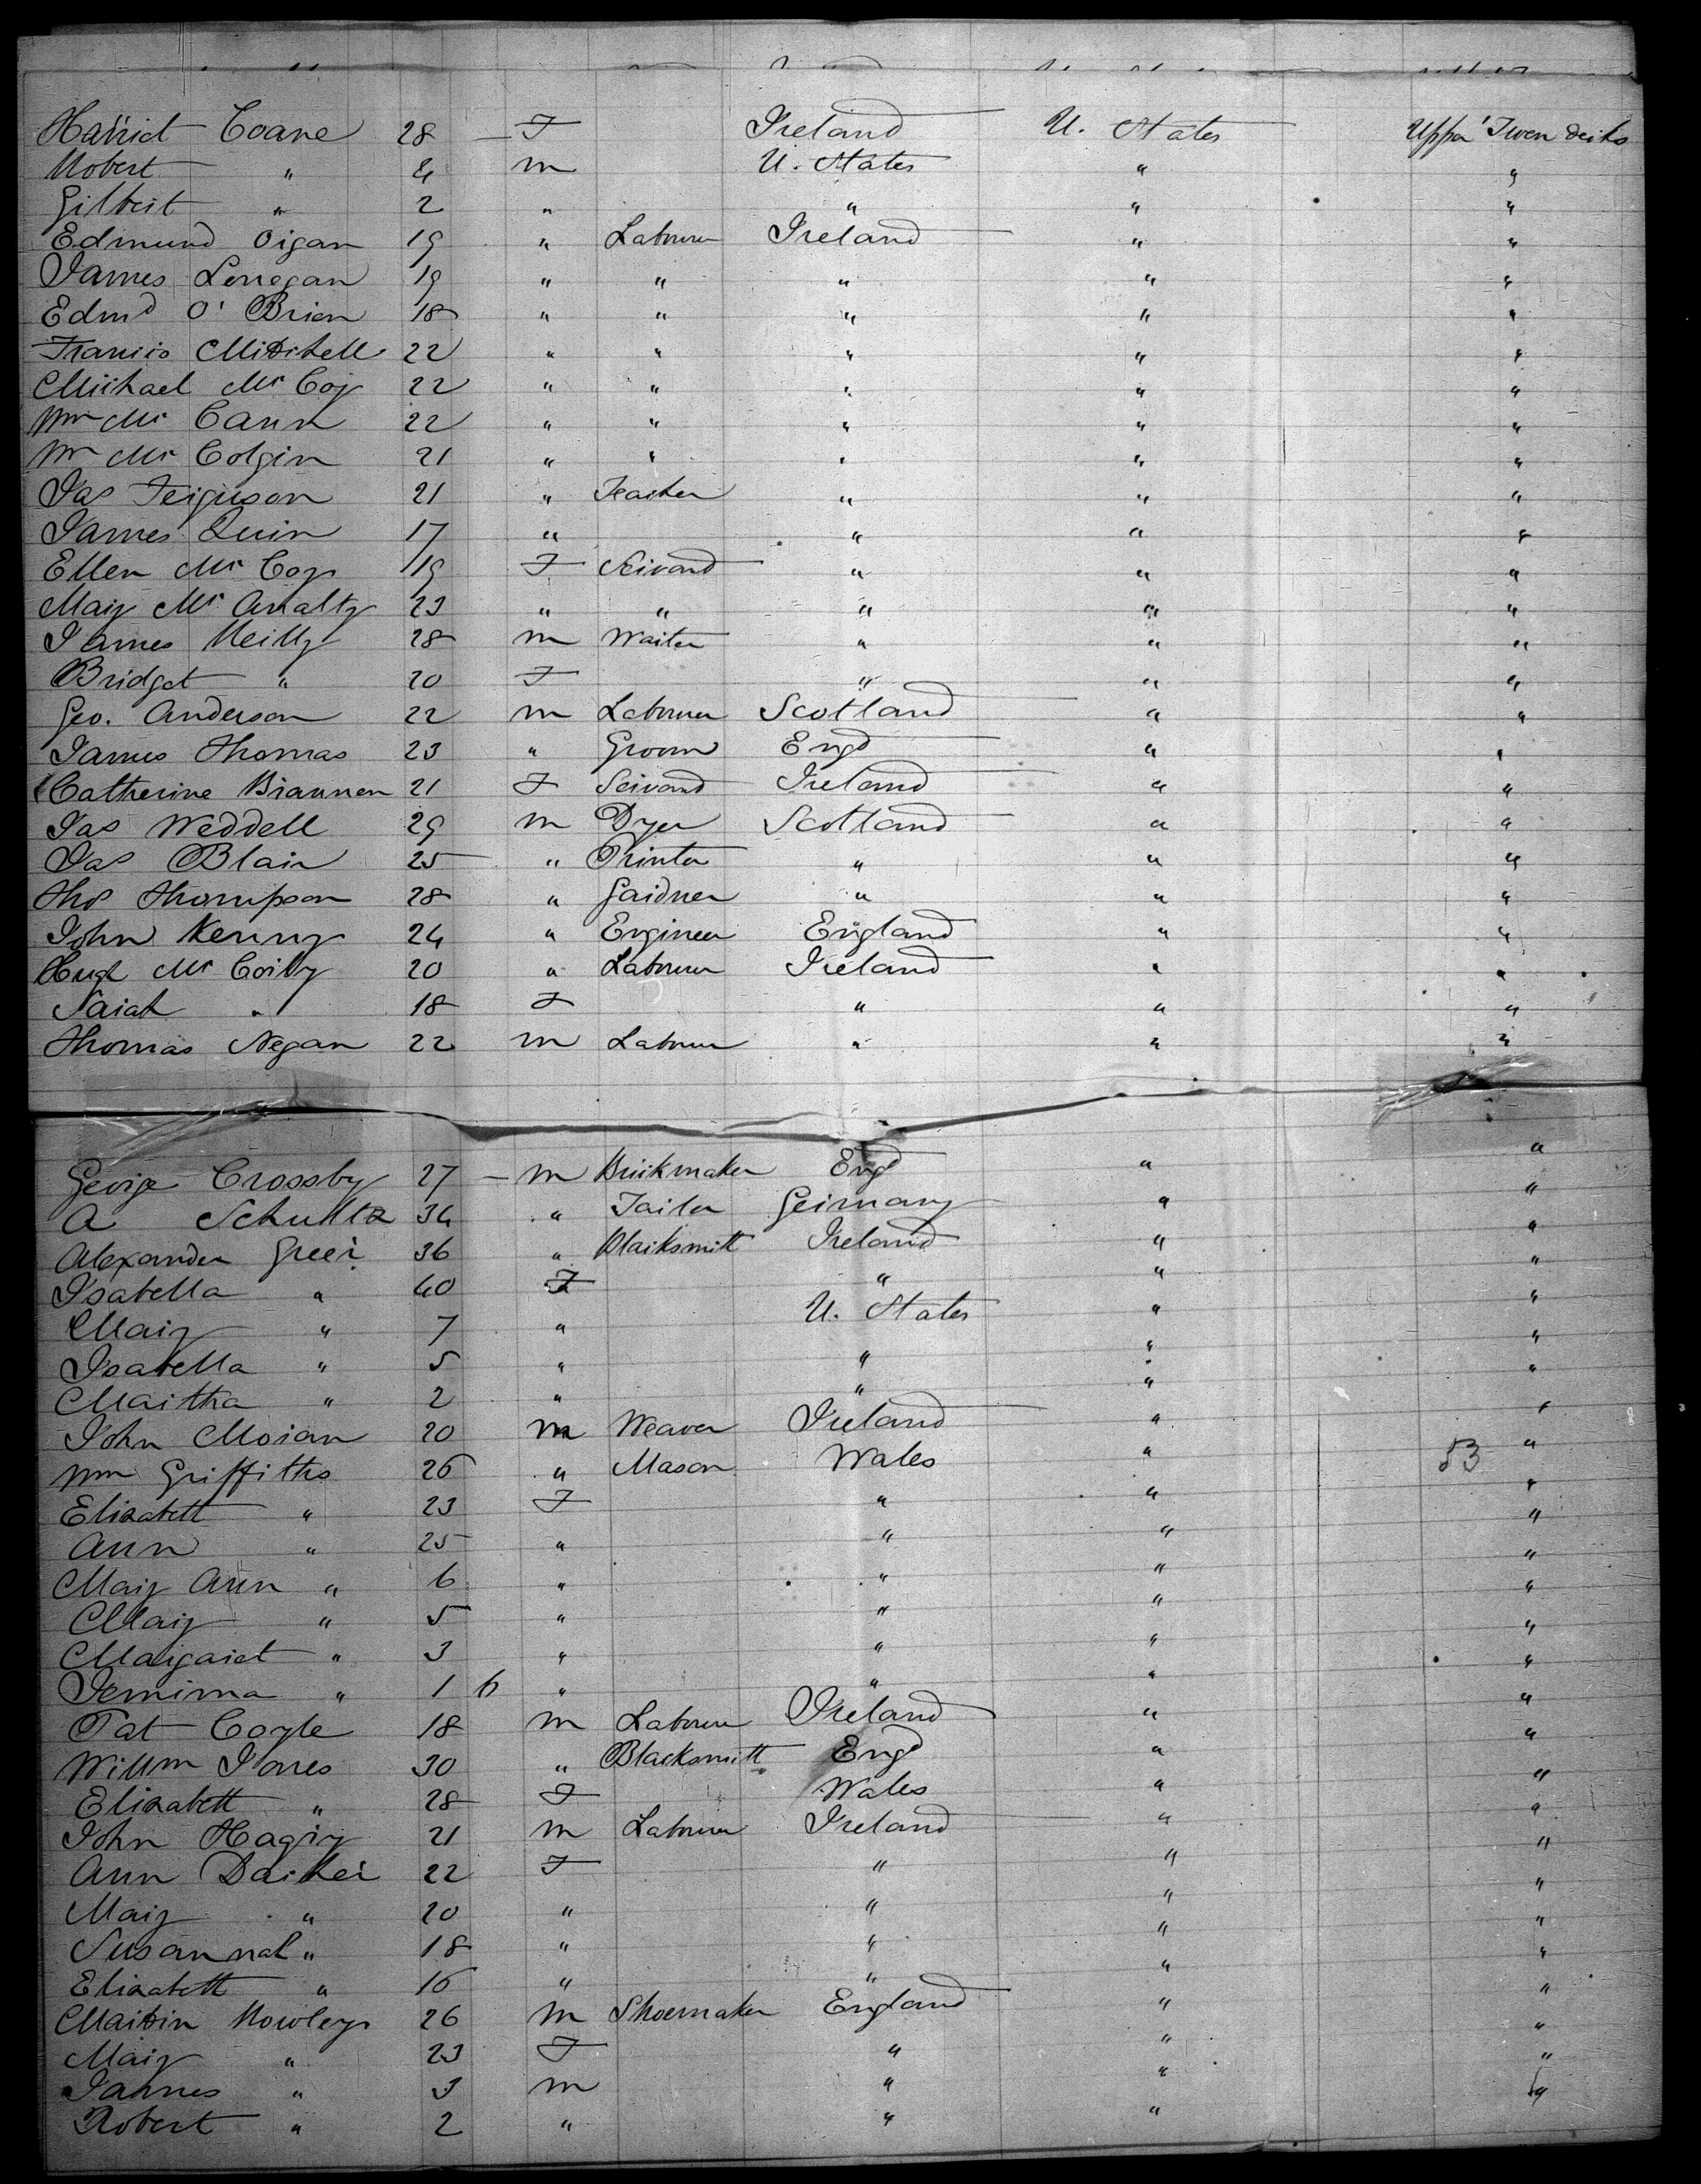 Harriet Coane 28 F Ireland U. States Upper Tween decks
Robert " 4 m U. States " "
Gilbert " 2 " " " "
Edmund Organ 19 " Labourer Ireland " "
James Lonegan 19 " " " " "
Edmd O' Brien 18 " " " " "
Francis Mitchell 22 " " " " "
Michael Mc Coy 22 " " " " "
Wm Mc Cann 22 " " " " "
Wm Mc Colgin 21 " " " " "
Jas Ferguson 21 " Teacher " " "
James Quin 17 " " " "
Ellen Mc Coy 19 F Servant " " "
Mary Mc Analty 23 " " " " "
James Reilly 28 m Waiter " " "
Bridget " 20 F " " "
Geo. Anderson 22 m Labourer Scotland " "
James Thomas 23 " Groom Engd " "
Catherine Brannen 21 F Servant Ireland " "
Jas Weddell 29 m Dyer Scotland " "
Jas Blair 25 " Printer " " "
Thos Thompson 28 " Gardner " " "
John Kenny 24 " Engineer England " "
Hugh Mc Corby 20 " Labourer Ireland " "
Sarah " 18 F " " "
Thomas Regan 22 m Labourer " " "
George Crossby 27 m Brickmaker Engd " "
A Schultz 34 " Tailor Germany " "
Alexander Greer 36 " Blacksmith Ireland " "
Isabella " 40 F " " "
Mary " 7 " U. States " "
Isabella " 5 " " " "
Martha " 2 " " " "
John Moran 20 m Weaver Ireland " "
Wm Griffiths 26 " Mason Wales " 53 "
Elizabeth " 23 F " " "
Ann " 25 " " " "
Mary Ann " 6 " " " "
Mary " 5 " " " "
Margaret " 3 " " " "
Jemima " 1 6 " " " "
Pat Coyle 18 m Labourer Ireland " "
Willm Jones 30 " Blacksmith Engd " "
Elizabeth " 28 F Wales " "
John Hagry 21 m Labourer Ireland " "
Ann Darker 22 F " " "
Mary " 20 " " " "
Susannah " 18 " " " "
Elizabeth " 16 " " " "
Martin Rowley 26 m Shoemaker England " "
Mary " 23 F " " "
James " 3 m " " "
Robert " 2 " " "